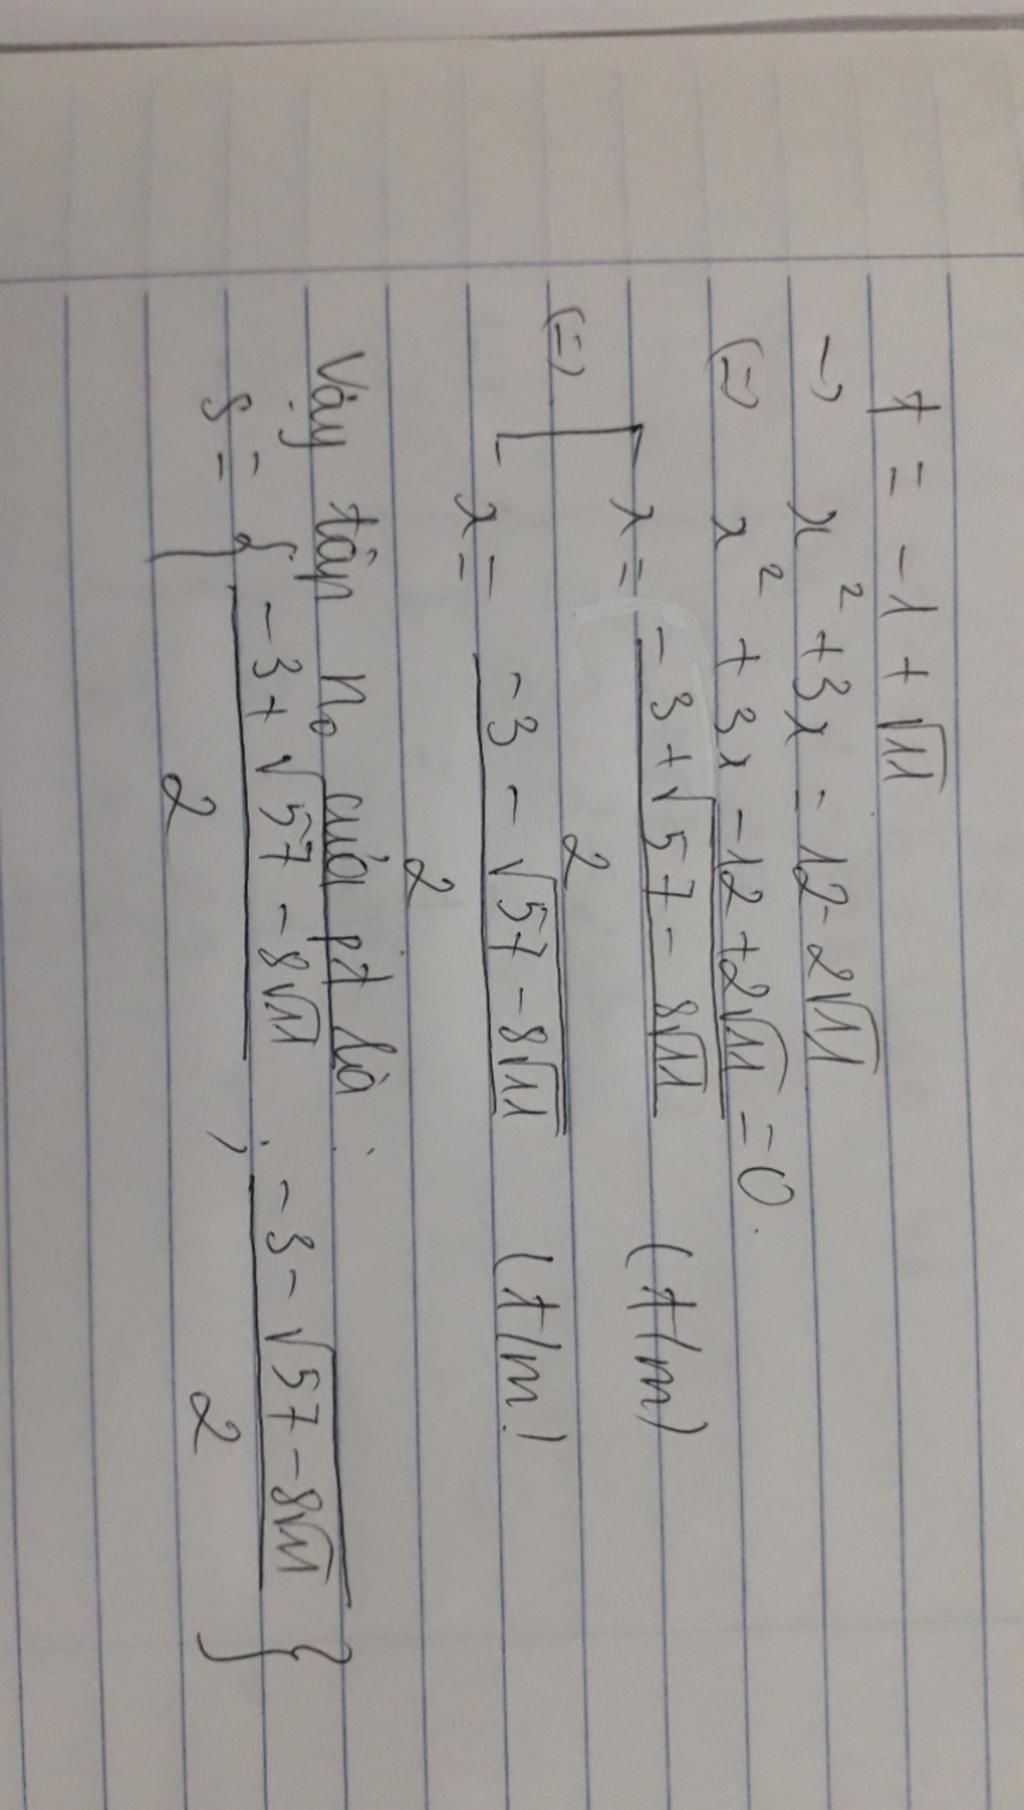 t = -1 + √11
→ x² + 3x = 12 - 2√11
(=) x² + 3x - 12 + 2√11 = 0.
(=) [ x = (-3 + √(57 - 8√11)) / 2 (t/m)
x = (-3 - √(57 - 8√11)) / 2 (t/m)
Vậy tập no của pt là :
S = { (-3 + √57 - 8√11) / 2 ; (-3 - √(57 - 8√11)) / 2 }